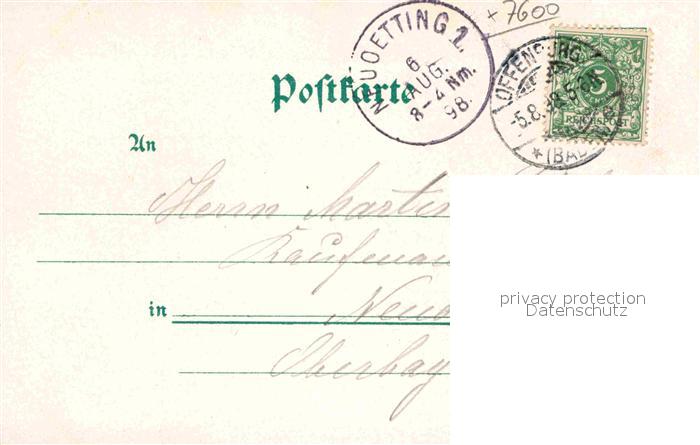 +7600
NEUOETTING 1.
6
AUG.
8-4 Nm.
98.
OFFENBURG
5.8.98.5-6
* (BAD
REICHSPOST
Postkarte
An
Herrn Martin
Kaufman
in Neuö
Oberbay
privacy protection
Datenschutz